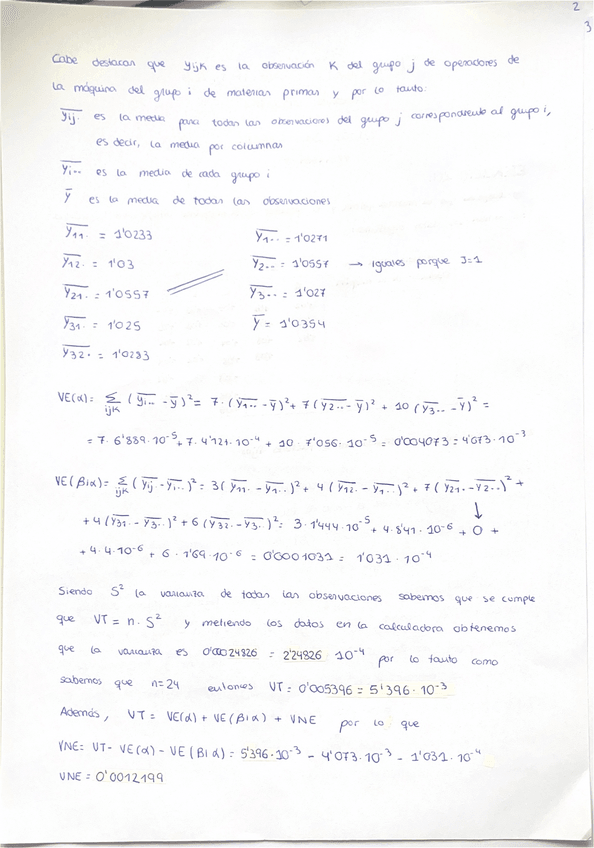 2
3
Cabe destacar que yijk es la observación K del grupo j de operadores de
la máquina del grupo i de materias primas y por lo tanto:
y̅ij. es la media para todas las observaciones del grupo j correspondiente al grupo i,
es decir, la media por columnas
y̅i.. es la media de cada grupo i
y̅ es la media de todas las observaciones
y̅11. = 1'0233 y̅1.. = 1'0271
y̅12. = 1'03 y̅2.. = 1'0557 → iguales porque J=1
y̅21. = 1'0557 y̅3.. = 1'027
y̅31. = 1'025 y̅ = 1'0354
y̅32. = 1'0283
VE(α) = Σijk (y̅i.. - y̅)² = 7·(y̅1.. - y̅)² + 7(y̅2.. - y̅)² + 10(y̅3.. - y̅)² =
= 7·6'889·10⁻⁵ + 7·4'121·10⁻⁴ + 10·7'056·10⁻⁵ = 0'004073 = 4'073·10⁻³
VE(βiα) = Σijk (y̅ij - y̅i..)² = 3(y̅11. - y̅1..)² + 4(y̅12. - y̅1..)² + 7(y̅21. - y̅2..)² +
↓
+ 4(y̅31. - y̅3..)² + 6(y̅32. - y̅3..)² = 3·1'444·10⁻⁵ + 4·8'41·10⁻⁶ + 0 +
+ 4·4·10⁻⁶ + 6·1'69·10⁻⁶ = 0'0001031 = 1'031·10⁻⁴
Siendo S² la varianza de todas las observaciones sabemos que se cumple
que VT = n·S² y metiendo los datos en la calculadora obtenemos
que la varianza es 0'00024826 = 2'24826·10⁻⁴ por lo tanto como
sabemos que n=24 entonces VT = 0'005396 = 5'396·10⁻³
Además, VT = VE(α) + VE(βiα) + VNE por lo que
VNE = VT - VE(α) - VE(βiα) = 5'396·10⁻³ - 4'073·10⁻³ - 1'031·10⁻⁴
VNE = 0'0012199